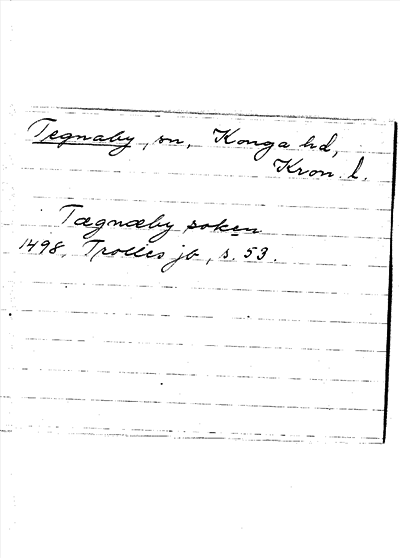 Tegnaby, sn, Konga hd,
Kron. l.
Tægnæby soken
1498. Trolles jb, s. 53.